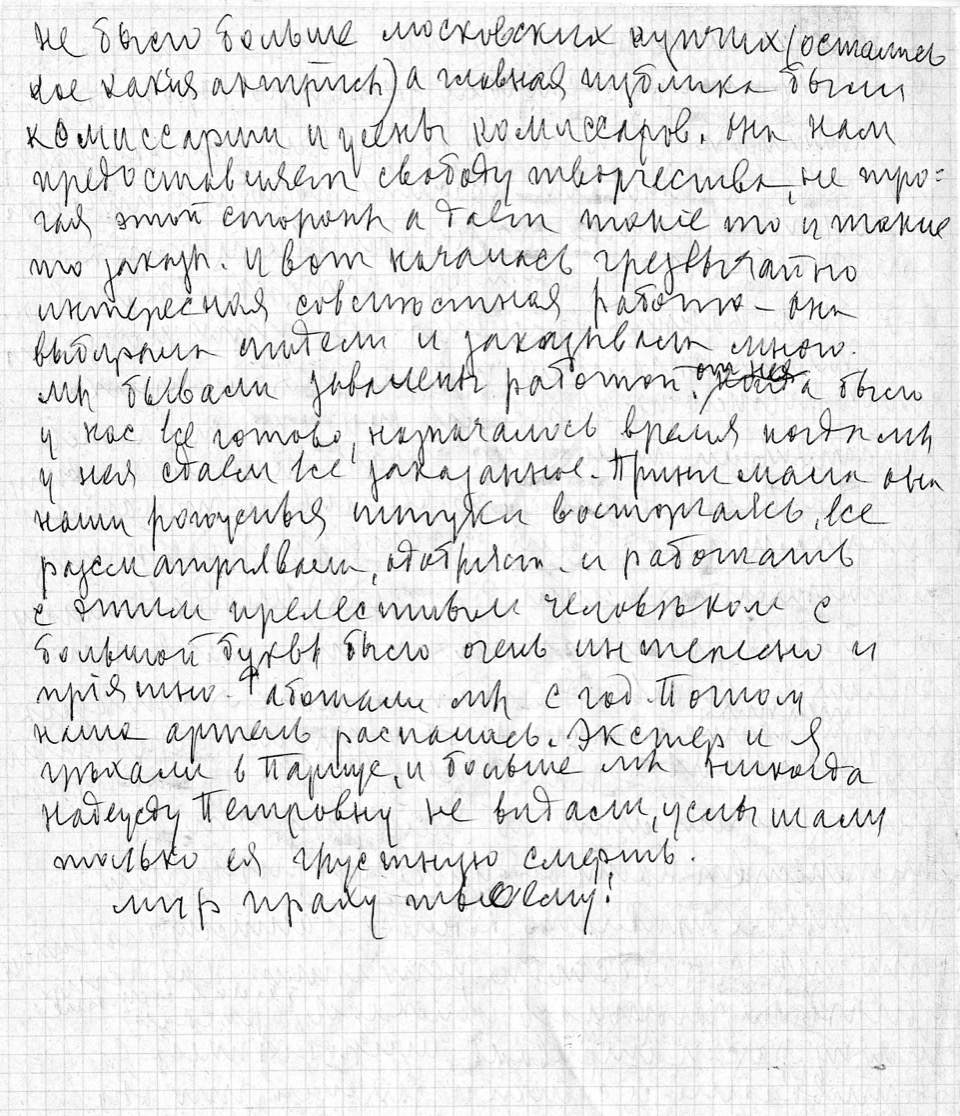 не было больше московских купчих (остались
кое какия актрисы) а главная публика были
комиссарши и жены комиссаров. Она нам
предоставляет свободу творчества, не тро=
гая этой стороны а дает такие то и такие
то заказы. И вот началась чрезвычайно
интересная совместная работа – она
выбирала модели и заказывала много.
Мы бывали завалены работой от нея. Когда было
у нас все готово, назначалось время когда мы
у нея сдаем все заказанное. Принимала она
наши рогожные штуки восторгаясь, все
рассматривали, одобряя. И работать
с этим прелестным человѣком с
большой буквы было очень интересно и
пріятно. Работали мы с год. Потом
наша артель распалась. Экстер и я
уѣхали в Париж, и больше мы никогда
Надежду Петровну не видали, услышали
только ея грустную смерть.
Мир праху твоему!